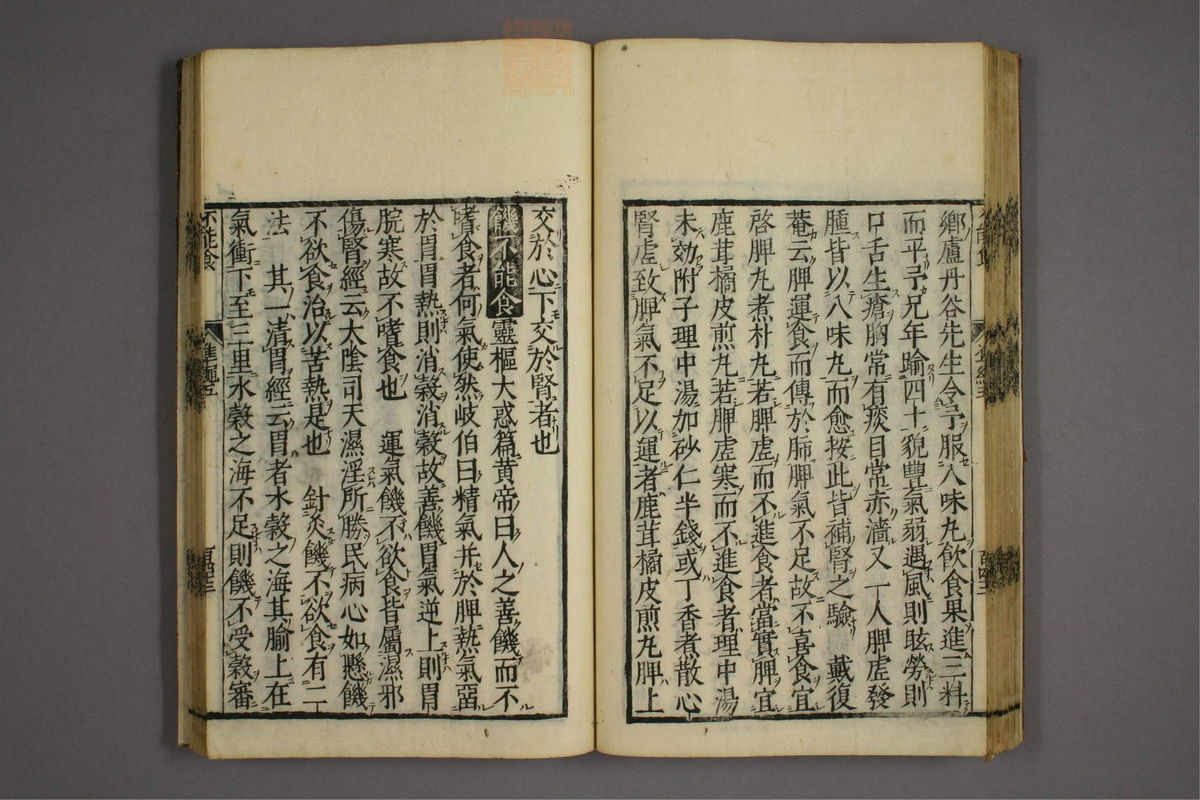 鄉廬丹谷先生令予服八味丸飲食果進三料
而平予兄年踰四十貌豐氣弱遇風則眩勞則
口舌生瘡胸常有痰目常赤濇又一人脾虛發
腫皆以八味丸而愈按此皆補腎之驗　戴復
菴云脾運食而傳於肺脾氣不足故不喜食宜
啓脾丸煮朴丸若脾虛而不進食者當實脾宜
鹿茸橘皮煎丸若脾虛寒而不進食者理中湯
未効附子理中湯加砂仁半錢或丁香煮散心
腎虛致脾氣不足以運者鹿茸橘皮煎丸脾上
交於心下交於腎者也
饑不能食靈樞大惑篇黃帝曰人之善饑而不
嗜食者何氣使然岐伯曰精氣并於脾熱氣畱
於胃胃熱則消穀消穀故善饑胃氣逆上則胃
脘寒故不嗜食也　運氣饑不欲食皆屬濕邪
傷腎經云太陰司天濕淫所勝民病心如懸饑
不欲食治以苦熱是也　針灸饑不欲食有二
法　其一清胃經云胃者水穀之海其腧上在
氣衝下至三里水穀之海不足則饑不受穀審
不能食